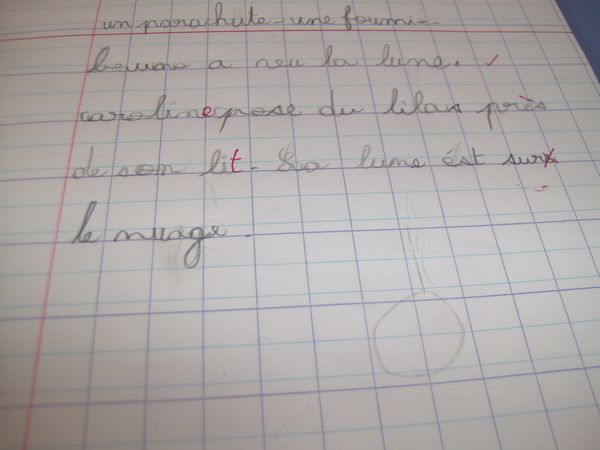 un parachute - une fourmi -
a vu la lune.
caroline pose du lilas près
de son lit - La lune ést sur
le nuage.